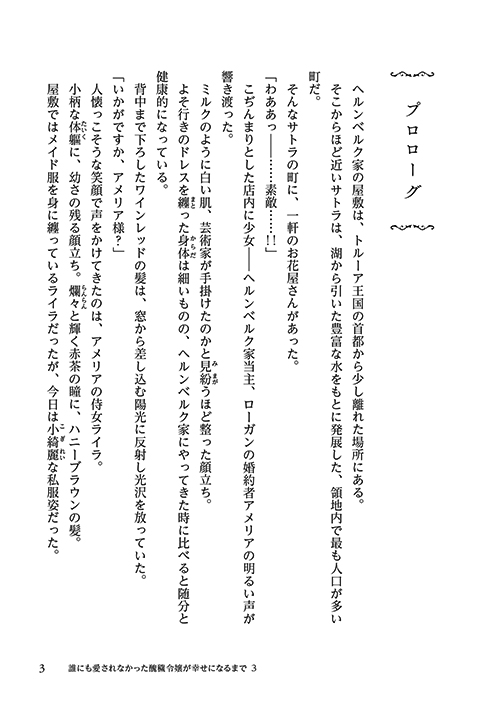 プロローグ
ヘルンベルク家の屋敷は、トルーア王国の首都から少し離れた場所にある。
そこからほど近いサトラは、湖から引いた豊富な水をもとに発展した、領地内で最も人口が多い
町だ。
そんなサトラの町に、一軒のお花屋さんがあった。
「わああっ——……素敵……!!」
こぢんまりとした店内に少女——ヘルンベルク家当主、ローガンの婚約者アメリアの明るい声が
響き渡った。
ミルクのように白い肌、芸術家が手掛けたのかと見紛うほど整った顔立ち。
よそ行きのドレスを纏った身体は細いものの、ヘルンベルク家にやってきた時に比べると随分と
健康的になっている。
背中まで下ろしたワインレッドの髪は、窓から差し込む陽光に反射し光沢を放っていた。
「いかがですか、アメリア様?」
人懐っこそうな笑顔で声をかけてきたのは、アメリアの侍女ライラ。
小柄な体軀に、幼さの残る顔立ち。爛々と輝く赤茶の瞳に、ハニーブラウンの髪。
屋敷ではメイド服を身に纏っているライラだったが、今日は小綺麗な私服姿だった。
3 誰にも愛されなかった醜穢令嬢が幸せになるまで 3